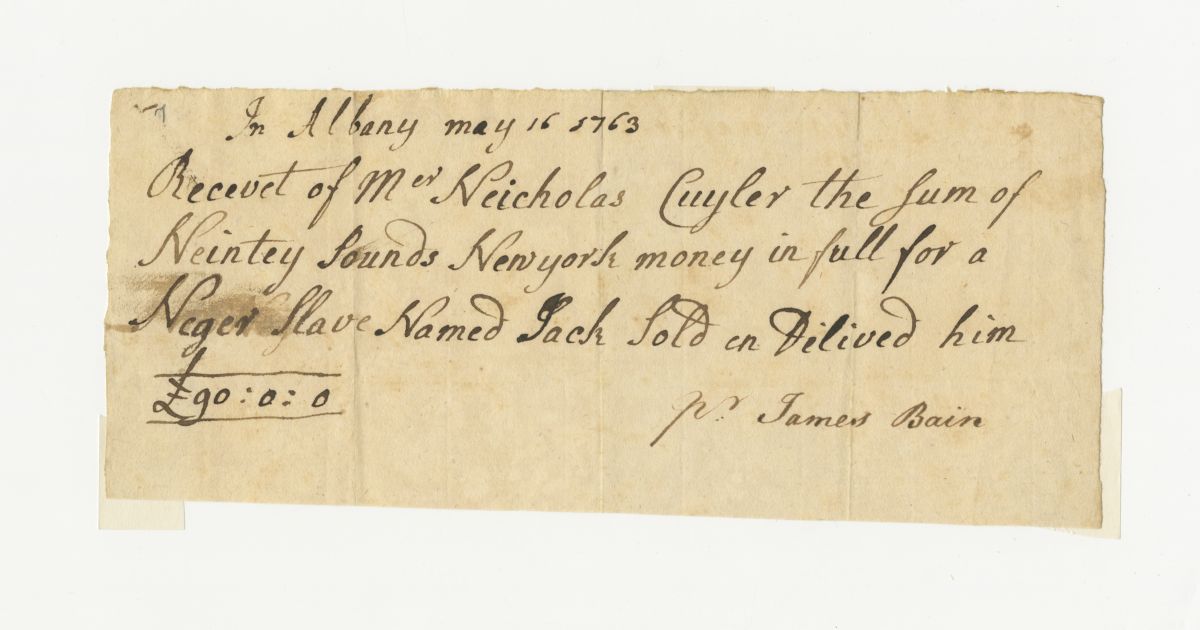 In Albany may 16 1763
Recevet of Mer Neicholas Cuyler the sum of
Neintey Pounds Newyork money in full for a
Neger Slave Named Jack Sold en Delived him
£90:0:0
pr James Bain